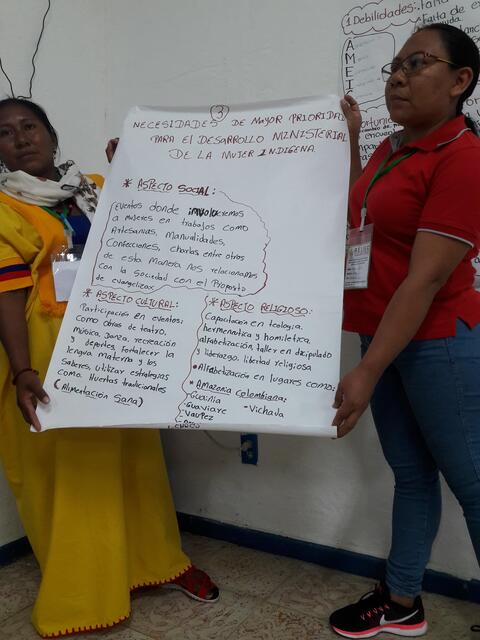 3
NECESIDADES DE MAYOR PRIORIDAD
PARA EL DESARROLLO MINISTERIAL
DE LA MUJER INDIGENA.
* ASPECTO SOCIAL:
Eventos donde involucremos
a mujeres en trabajos como
Artesanias, manualidades,
Confecciones, charlas entre otros
de esta manera nos relacionamos
con la Sociedad con el Proposito
de evangelizar
* ASPECTO CULTURAL:
Participación en eventos;
como obras de teatro,
música, Danza, recreación
y deportes, fortalecer la
lengua materna y los
Saberes, utilizar estrategias
como Huertas tradicionales
(Alimentación Sana)
* ASPECTO RELIGIOSO:
Capacitación en teologia,
hermeneutica y homiletica,
alfabetización, taller en discipulado
y liderazgo, libertad religiosa
• Alfabetización en lugares como:
• Amazonia Colombiana:
- Guainia
- Guaviare
- Vaupez
- Vichada
1 Debilidades:
Falta de